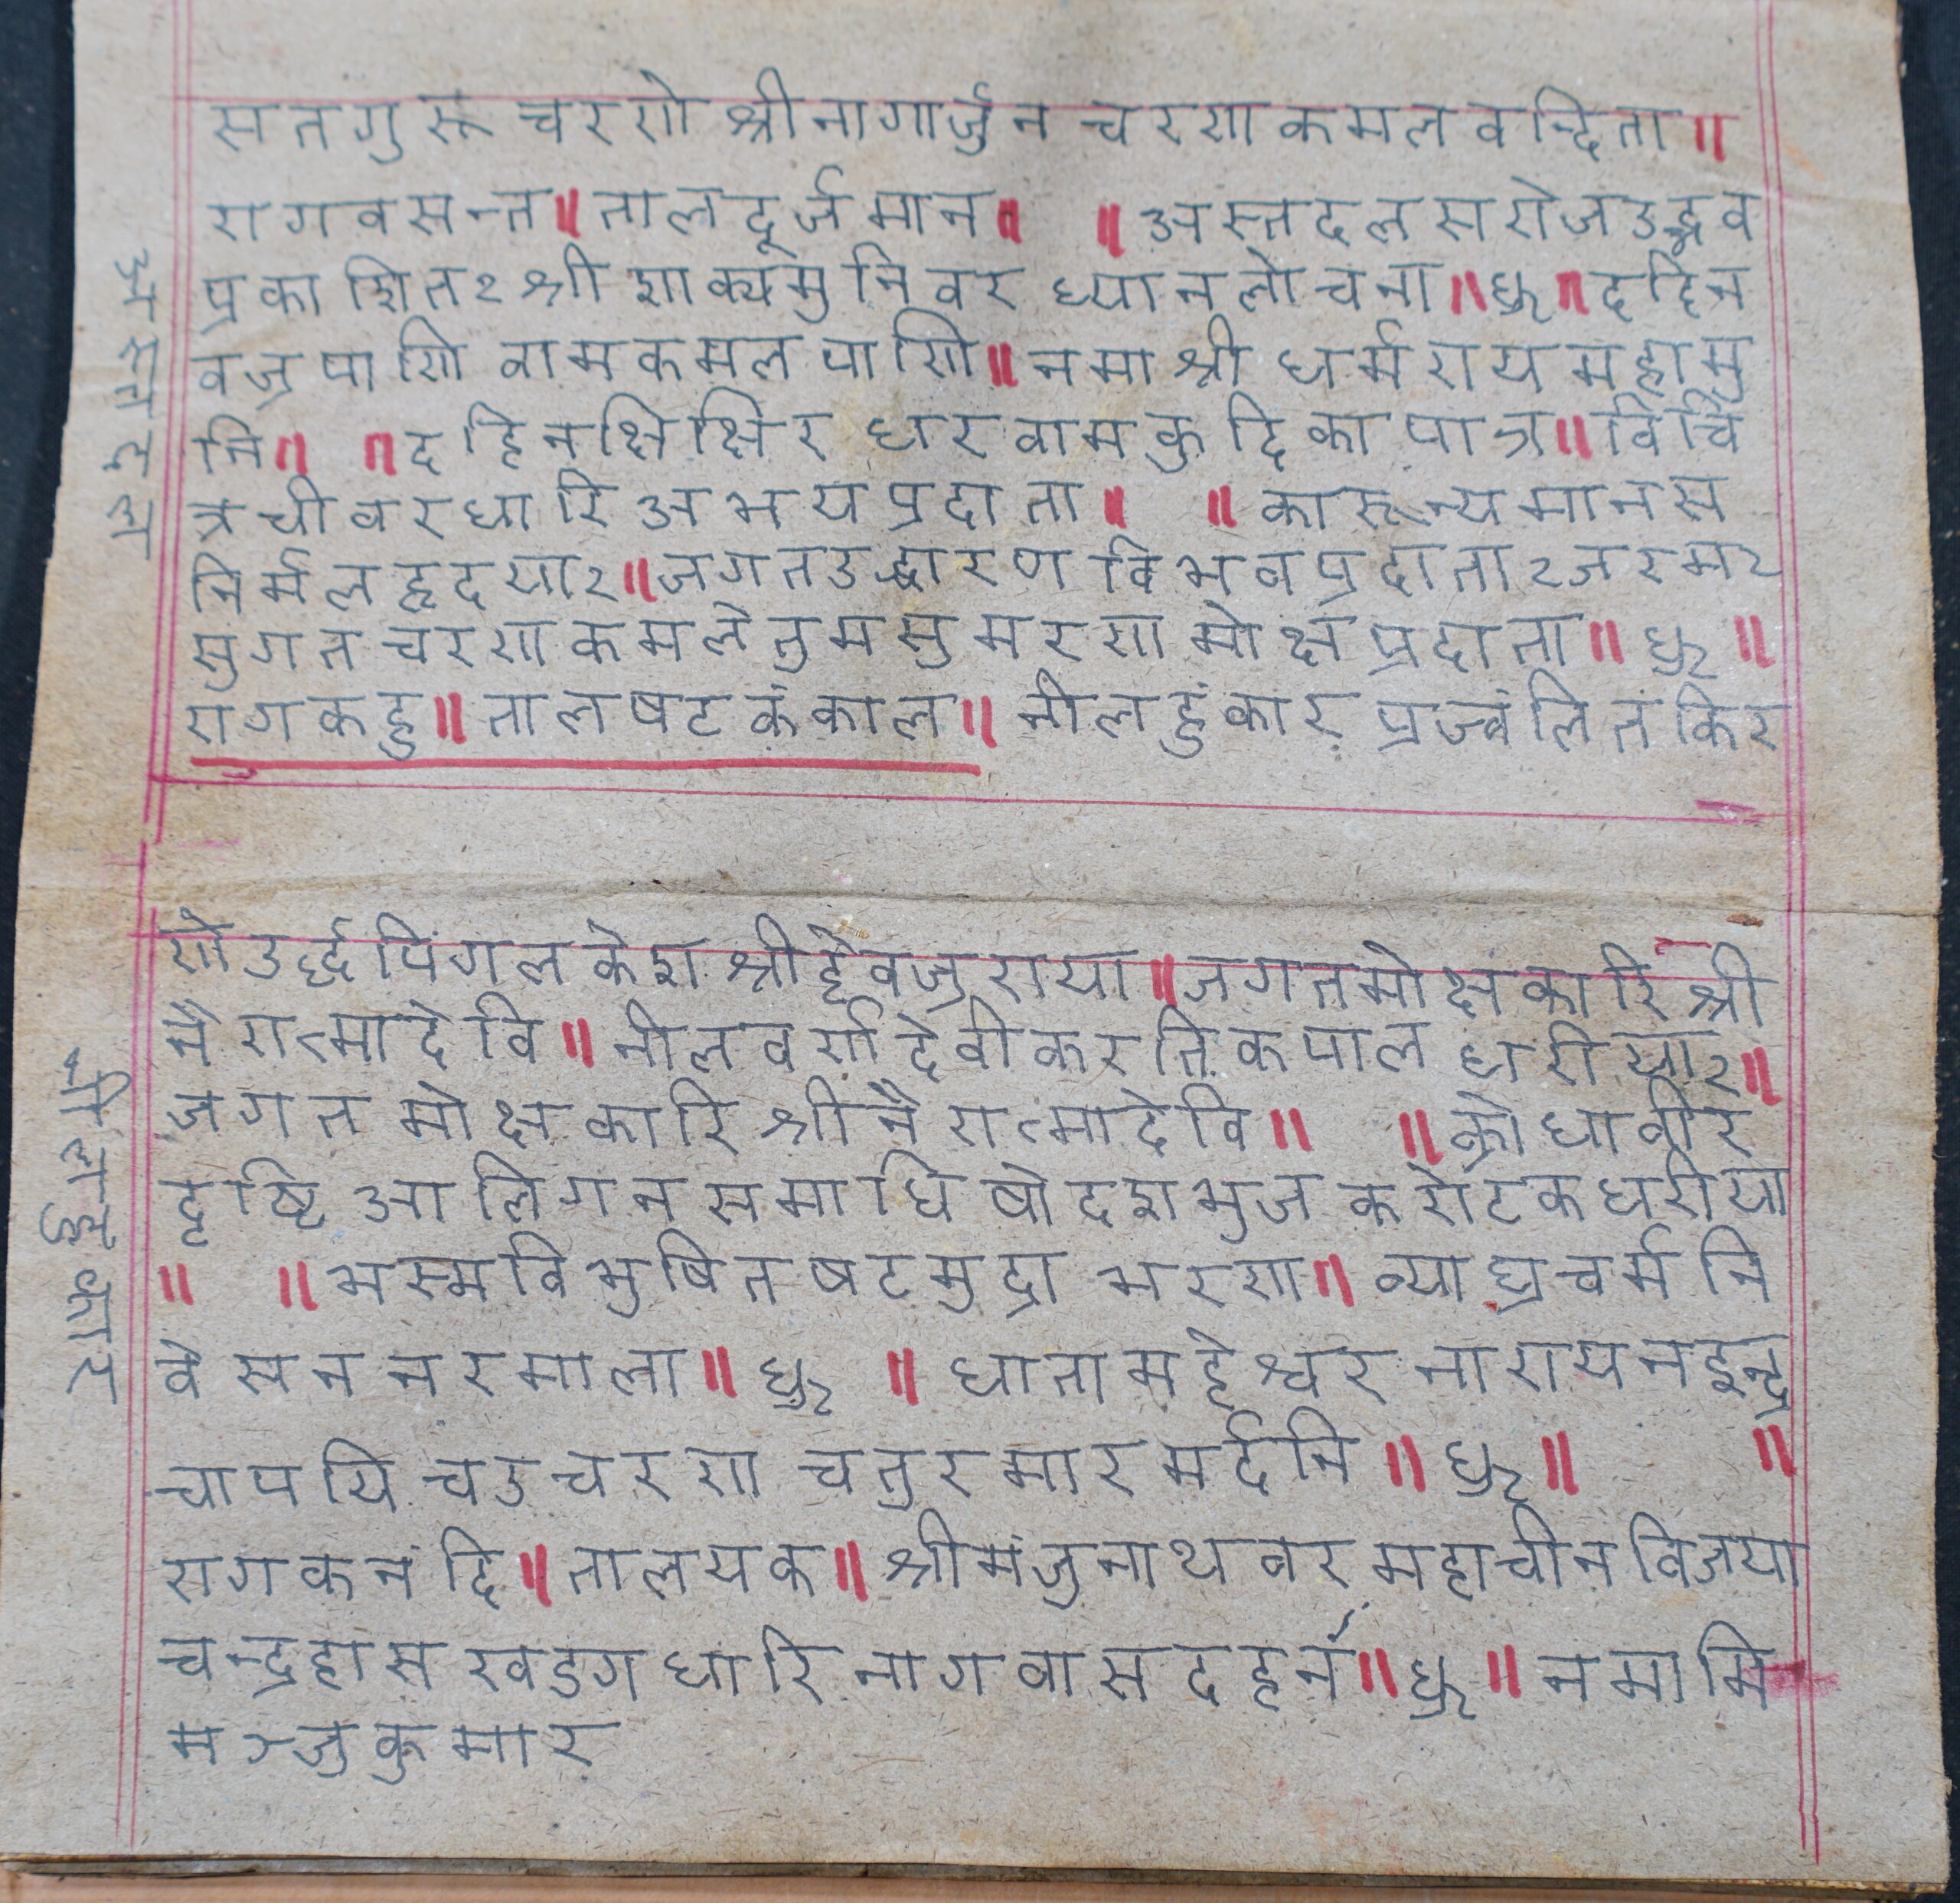 सतगुरू चरणे श्रीनागार्जुन चरण कमल वन्दिता॥
रागवसन्त॥तालदूर्जमान॥ ॥अस्तदलसरोजउद्भव
प्रकाशित२श्री शाक्यमुनिवर ध्यानलोचना॥ध्रु॥दहिन
वज्रपाणि वामकमल पाणि॥नमाश्री धर्मराय महामु
नि॥ ॥दहिनक्षिक्षिर धर वामकुदिका पात्र॥विचि
त्रचीवरधारि अभयप्रदाता॥ ॥कारून्यमानस
निर्मलहृदया२॥जगतउद्धारण विभवप्रदाता२जरमर
सुगतचरणकमले तुमसुमरण मोक्षप्रदाता॥ध्रु॥
रागकहु॥तालषटकंकाल॥नीलहुंकार प्रज्वंलितकिर
अस्तदल
णेउर्द्धपिंगलकेश श्रीहेवज्रराया॥जगतमोक्षकारि श्री
नैरात्मादेवि॥नीलवर्णादेवीकरतिकपाल धरीया२॥
जगत मोक्षकारि श्रीनैरात्मादेवि॥ ॥क्रोधावीर
दृष्टि आलिगनसमाधि षोदशभुज करोटकधरीया
॥ ॥भस्मविभुषितषटमुद्रा भरण॥व्याघ्रचर्म नि
वेसन नरमाला॥ध्रु॥धातामहेश्वर नारायनइन्द्र
चापयि चउचरण चतुरमारमर्दनि॥ध्रु॥ ॥
रागकनंदि॥तालयक॥श्रीमंजुनाथवर महाचीनविजया
चन्द्रहास खडगधारि नागवासदहनं॥ध्रु॥नमामि
मञ्जुकुमार
नीलहुंकार